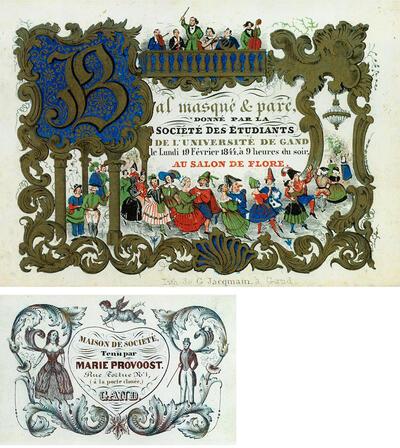 Bal masqué & paré.
DONNÉ PAR LA
SOCIÉTÉ DES ETUDIANTS
DE L'UNIVERSITÉ DE GAND
le Lundi 19 Février 1844, à 9 heures du soir,
AU SALON DE FLORE.
Lith. de G. Jacqmain, à Gand.
MAISON DE SOCIÉTÉ,
Tenu par
MARIE PROVOOST.
Rue Tortue No 1,
(à la porte clouée,)
GAND